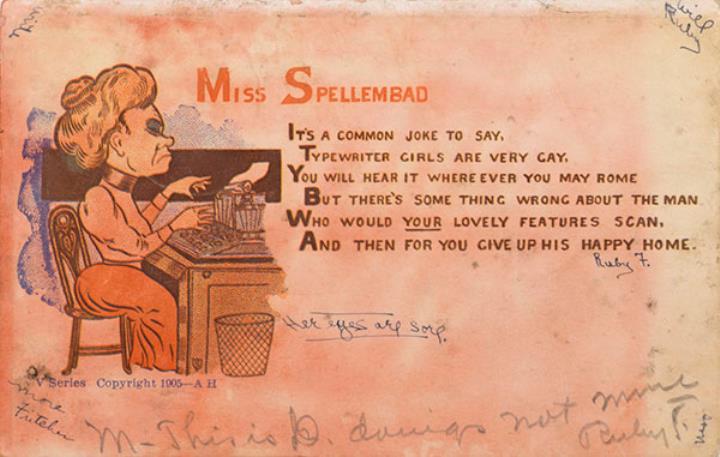 will
Ruby
MISS SPELLEMBAD
IT'S A COMMON JOKE TO SAY,
TYPEWRITER GIRLS ARE VERY GAY,
YOU WILL HEAR IT WHERE EVER YOU MAY ROME
BUT THERE'S SOME THING WRONG ABOUT THE MAN
WHO WOULD YOUR LOVELY FEATURES SCAN,
AND THEN FOR YOU GIVE UP HIS HAPPY HOME.
Ruby F.
Her eyes are sore.
V Series Copyright 1905—A H
more
M-This is B. doings not mine
Ruby F.
Miss